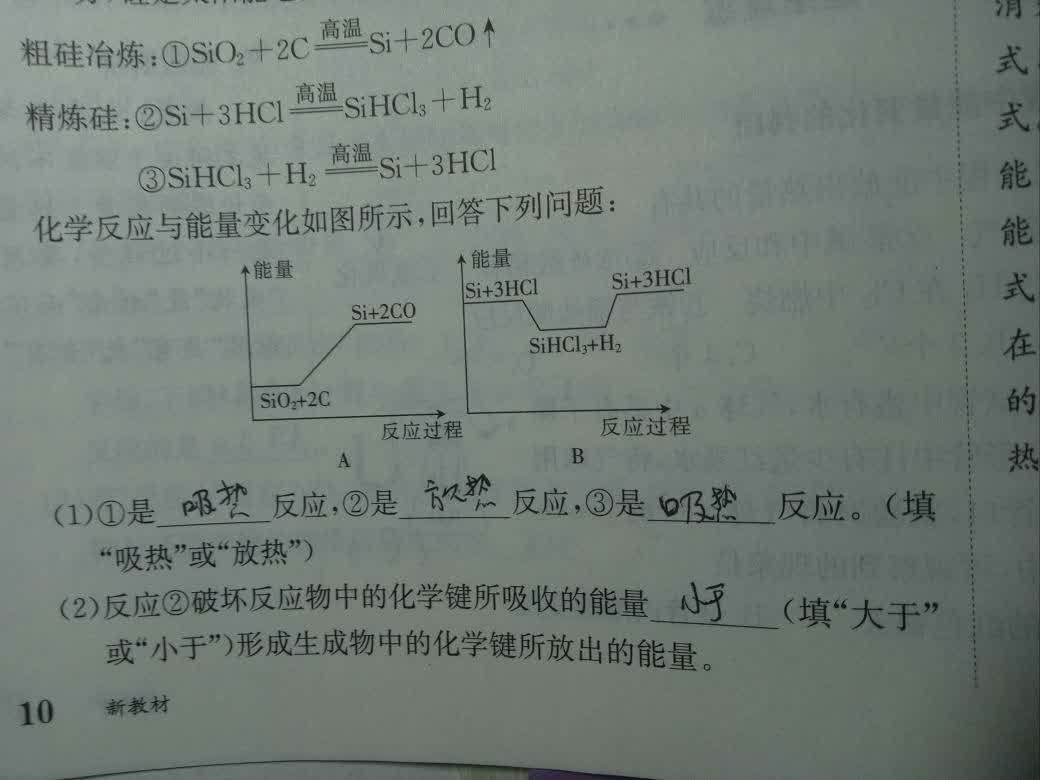 粗硅冶炼:①SiO₂+2C 高温 Si+2CO↑
精炼硅:②Si+3HCl 高温 SiHCl₃+H₂
③SiHCl₃+H₂ 高温 Si+3HCl
化学反应与能量变化如图所示,回答下列问题:
能量
Si+2CO
SiO₂+2C
反应过程
A
能量
Si+3HCl
Si+3HCl
SiHCl₃+H₂
反应过程
B
(1)①是 吸热 反应,②是 放热 反应,③是 吸热 反应。(填
“吸热”或“放热”)
(2)反应②破坏反应物中的化学键所吸收的能量 小于 (填“大于”
或“小于”)形成生成物中的化学键所放出的能量。
10 新教材
消
式
式
能
能
式
在
的
热